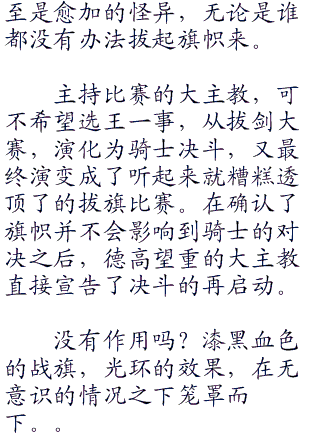 至是愈加的怪异，无论是谁
都没有办法拔起旗帜来。
主持比赛的大主教，可
不希望选王一事，从拔剑大
赛，演化为骑士决斗，又最
终演变成了听起来就糟糕透
顶了的拔旗比赛。在确认了
旗帜并不会影响到骑士的对
决之后，德高望重的大主教
直接宣告了决斗的再启动。
没有作用吗？漆黑血色
的战旗，光环的效果，在无
意识的情况之下笼罩而
下。。